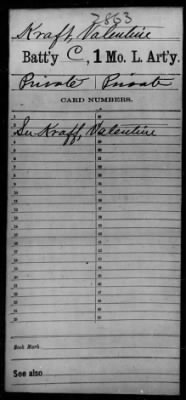 2863
Kraft, Valentine
Batt'y C, 1 Mo. L. Art'y.
Private Private
CARD NUMBERS.
Su Kraff, Valentine
Book Mark
See also